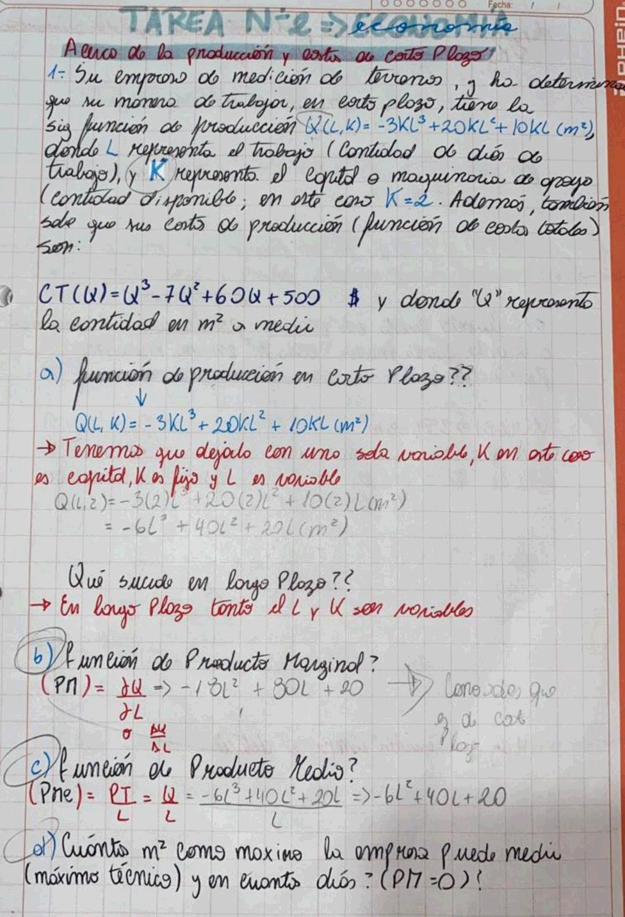 Fecha: / /
TAREA N=2 => economía
Acerca de la producción y costos de corto Plazo
1- Su empresa de medición de terrenos, y ha determina
que su manera de trabajar, en corto plazo, tiene la
sig función de producción Q(L,K)= -3KL³+20KL²+10KL (m²),
donde L representa el trabajo (Cantidad de días de
trabajo), y K representa el capital o maquinaria de apoyo
(cantidad disponible; en este caso K=2. Además, también
sabe que sus costos de producción (función de costos totales)
son:
CT(Q)=Q³-7Q²+60Q+500 $ y donde "Q" representa
la cantidad en m² a medir
a) función de producción en corto Plazo??
↓
Q(L,K)= -3KL³ + 20KL² + 10KL (m²)
→ Tenemos que dejarlo con una sola variable, K en este caso
es capital, K es fijo y L es variable
Q(L,2)= -3(2)L³+20(2)L²+10(2)L(m²)
= -6L³ + 40L² + 20L(m²)
Qué sucede en largo Plazo??
→ En largo Plazo tanto el L y K son variables
b) función de Producto Marginal?
(PM) = ∂Q => -18L² + 80L + 20
∂L
o ΔQ
ΔL
c) función de Producto Medio?
(Pme) = PT = Q = -6L³+40L²+20L => -6L²+40L+20
L L L
d) Cuántos m² como maximo la empresa puede medir
(máximo técnico) y en cuantos días? (PM=0)!